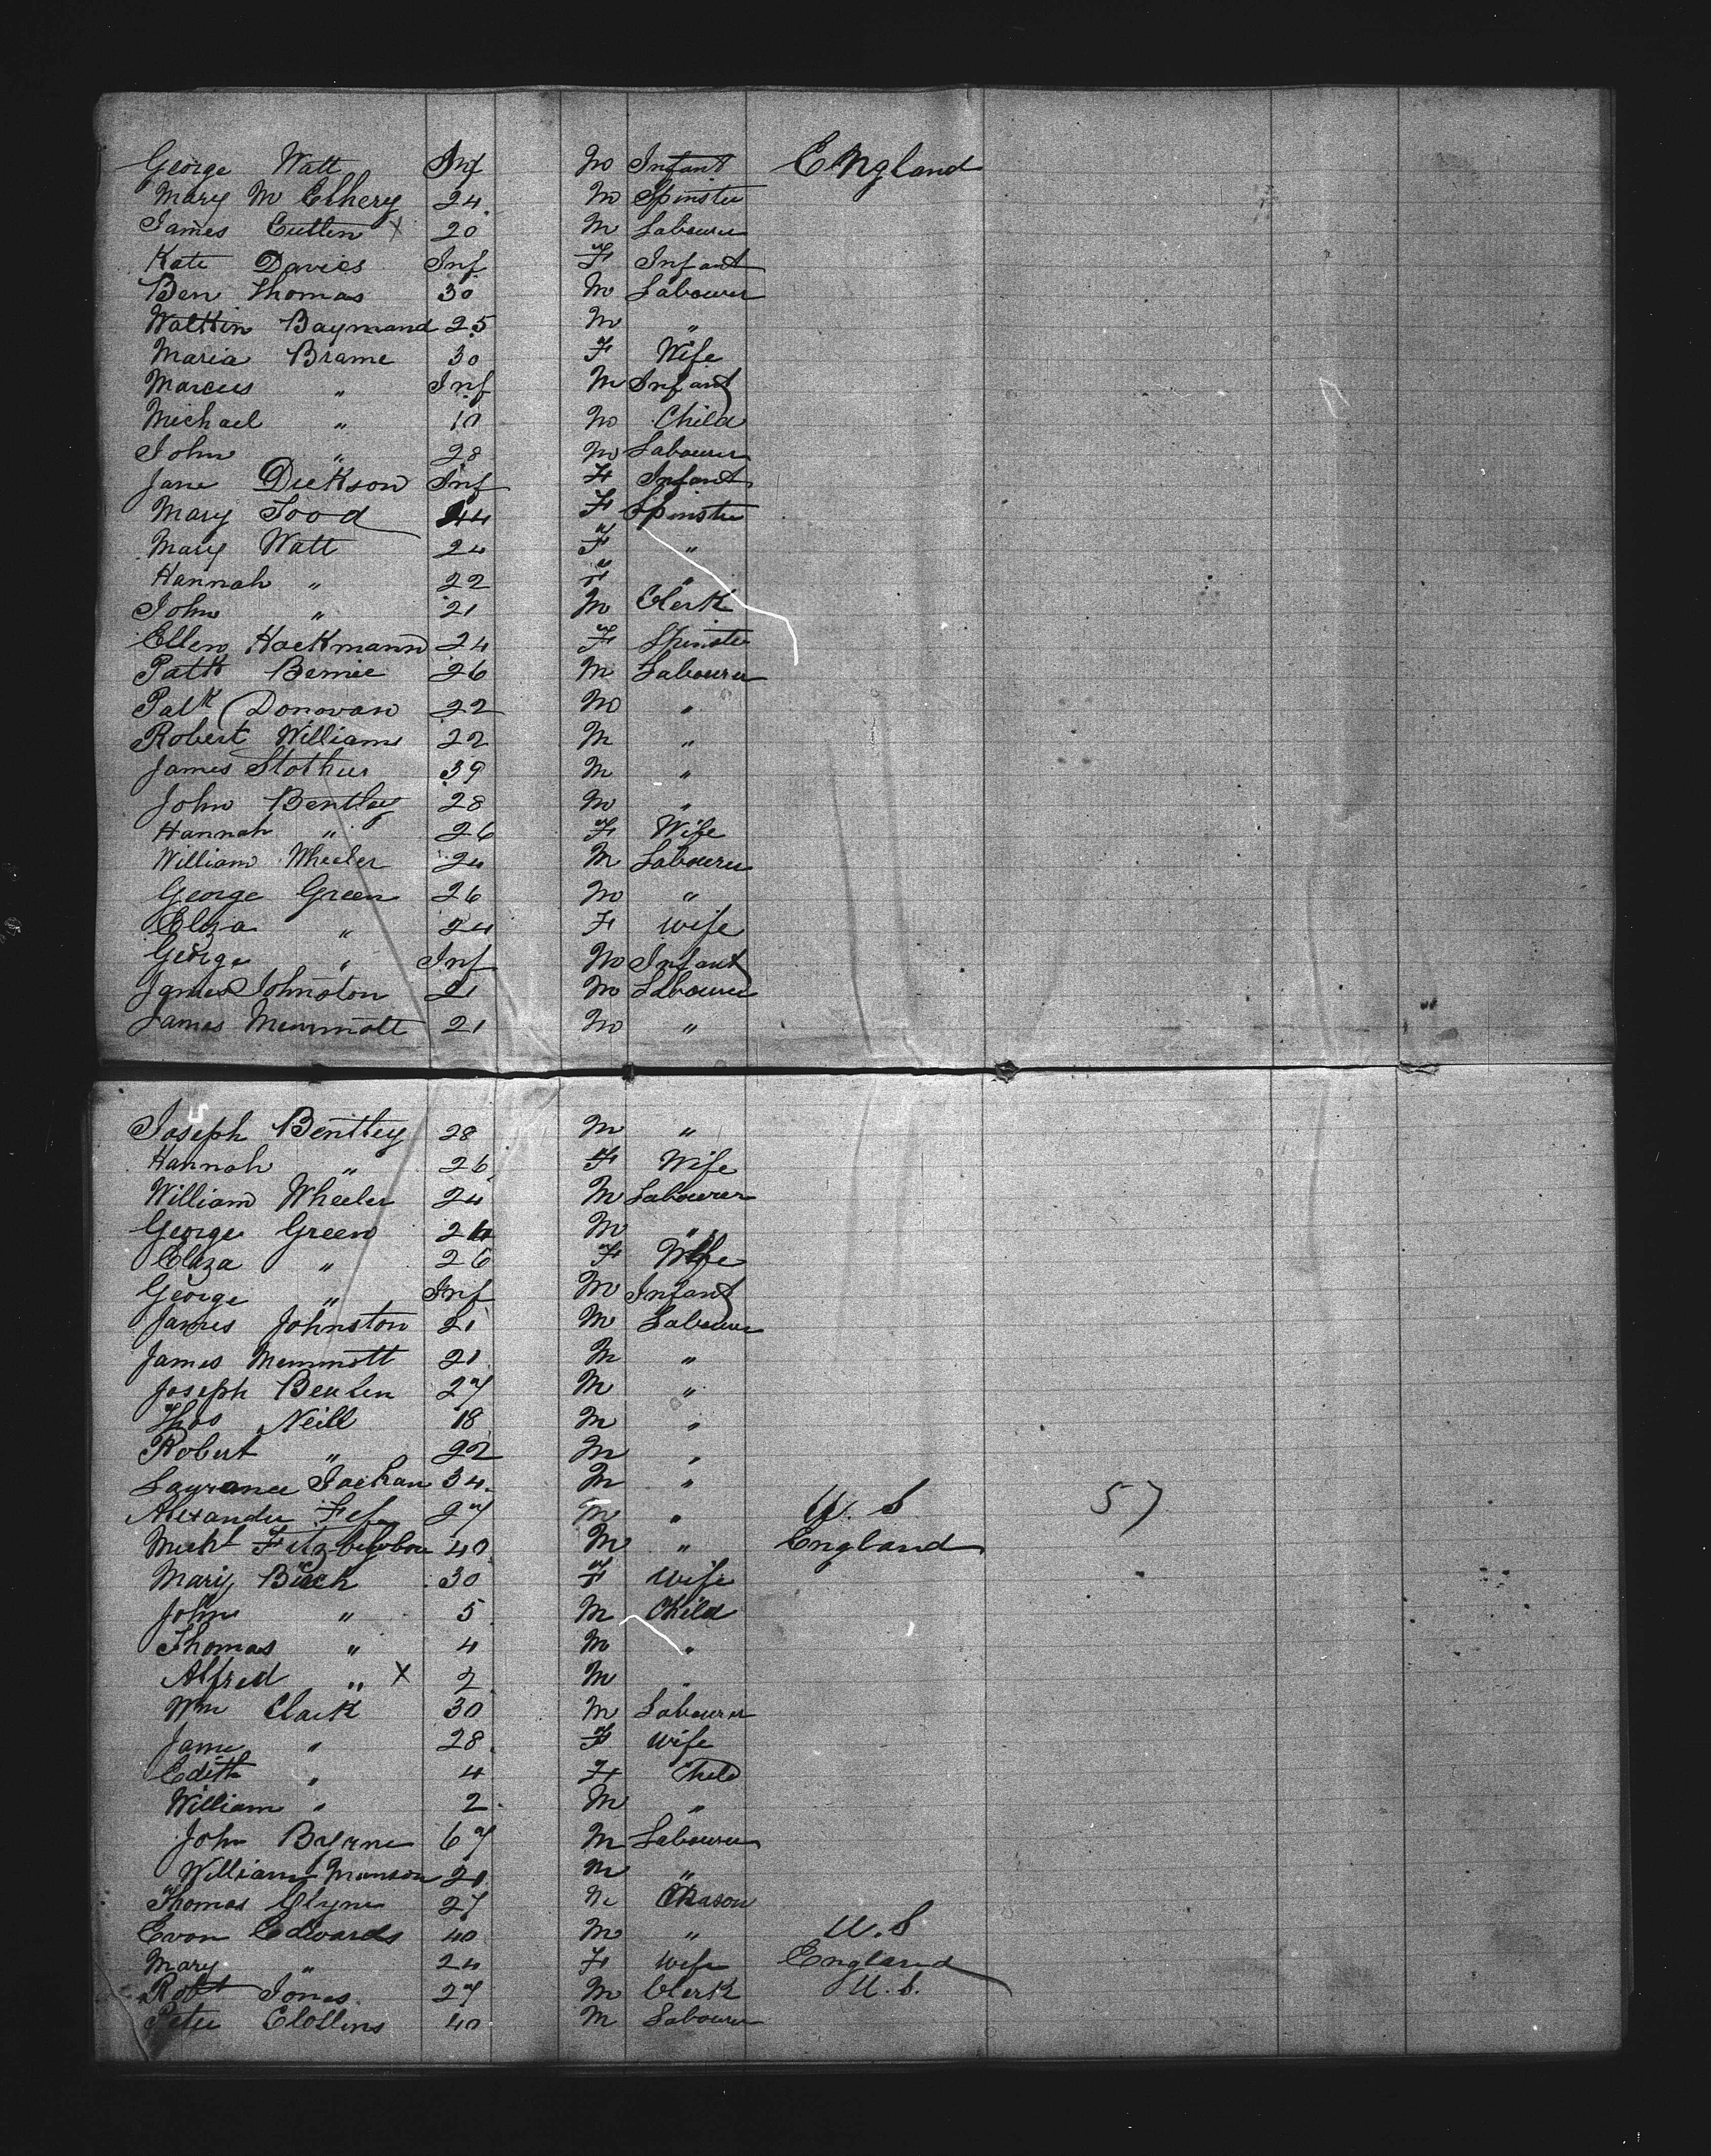 George Watt Inf M Infant England
Mary Mc Elhery 24 M Spinster
James Cutten X 20 M Labourer
Kate Davies Inf F Infant
Ben Thomas 30 M Labourer
Watkin Baymand 25 M "
Maria Brame 30 F Wife
Marcus " Inf M Infant
Michael " 10 M Child
John " 28 M Labourer
Jane Dickson Inf F Infant
Mary Tood 44 F Spinster
Mary Watt 24 F "
Hannah " 22 F "
John " 21 M Clerk
Ellen Hackmann 24 F Spinster
Patk Bernie 26 M Labourer
Patk Donovan 22 M "
Robert Williams 22 M "
James Stother 39 M "
John Bentley 28 M "
Hannah " 26 F Wife
William Wheeler 24 M Labourer
George Green 26 M "
Eliza " 24 F Wife
George " Inf M Infant
James Johnston 21 M Labourer
James Memmott 21 M "
Joseph Bentley 28 M "
Hannah " 26 F Wife
William Wheeler 24 M Labourer
George Green 24 M "
Eliza " 26 F Wife
George " Inf M Infant
James Johnston 21 M Labourer
James Memmott 21 M "
Joseph 27 M "
Thos Neill 18 M "
Robert " 22 M "
Laurance 34 M "
Alexander 27 M " U. S 57
Michl 40 M " England
Mary Birch 30 F Wife
John " 5 M Child
Thomas " 4 M "
Alfred " X 2 M
Wm Clark 30 M Labourer
Jane " 28 F Wife
Edith " 4 F Child
William " 2 M "
John Byrne 67 M Labourer
William Manson 21 M "
Thomas Glynn 27 M Mason
Evan Edwards 40 M " U. S
Mary " 24 F Wife England
Robt Jones 27 M Clerk U. S.
Peter Collins 40 M Labourer